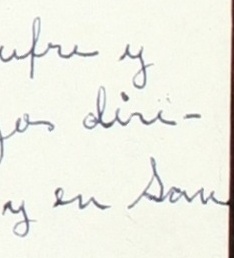 ufre y
jos diri-
y en San